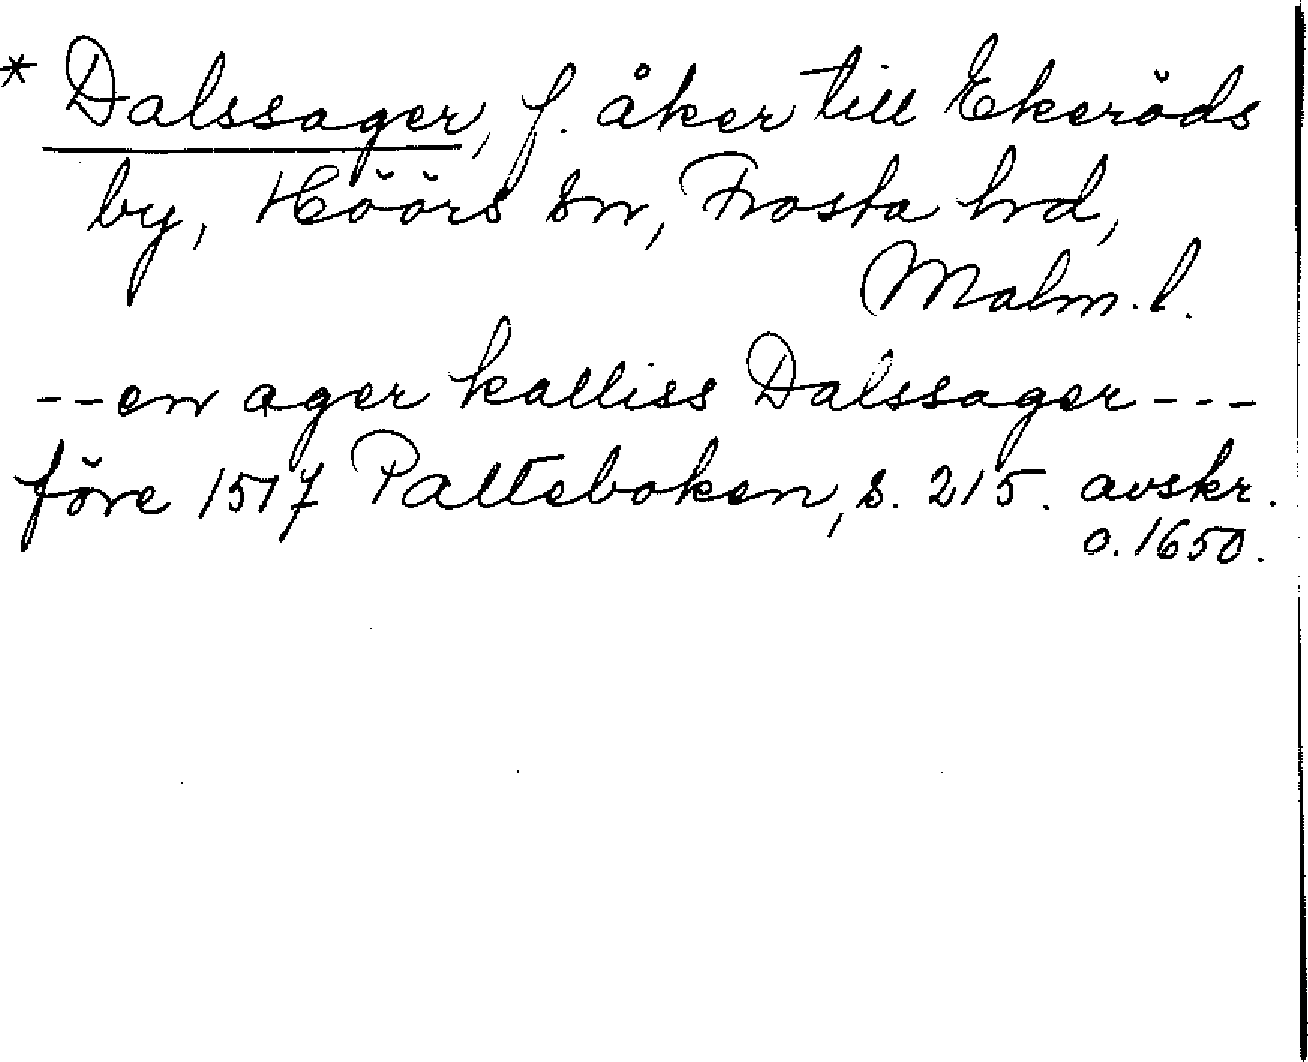 * Dalssager, f. åker till Ekeröds
by, Höörs sn, Frosta hrd,
Malm. l.
--en ager kalliss Dalssager---
före 1517 Palteboken, s. 215. avskr.
o. 1650.